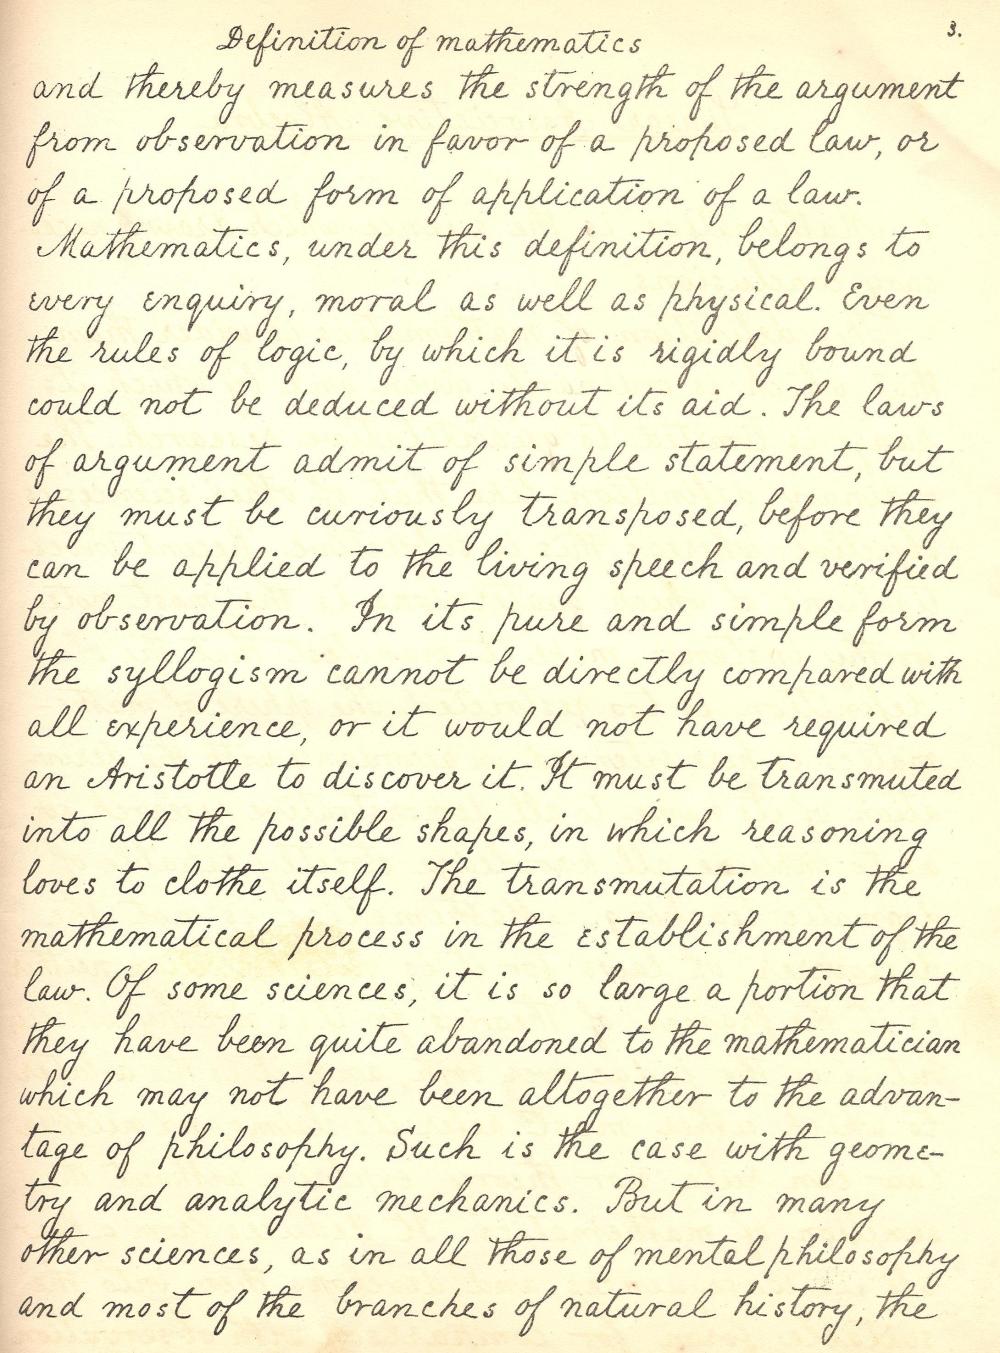 Definition of mathematics
3.
and thereby measures the strength of the argument
from observation in favor of a proposed law, or
of a proposed form of application of a law.
Mathematics, under this definition, belongs to
every enquiry, moral as well as physical. Even
the rules of logic, by which it is rigidly bound
could not be deduced without its aid. The laws
of argument admit of simple statement, but
they must be curiously transposed, before they
can be applied to the living speech and verified
by observation. In its pure and simple form
the syllogism cannot be directly compared with
all experience, or it would not have required
an Aristotle to discover it. It must be transmuted
into all the possible shapes, in which reasoning
loves to clothe itself. The transmutation is the
mathematical process in the establishment of the
law. Of some sciences, it is so large a portion that
they have been quite abandoned to the mathematician
which may not have been altogether to the advan-
tage of philosophy. Such is the case with geome-
try and analytic mechanics. But in many
other sciences, as in all those of mental philosophy
and most of the branches of natural history, the